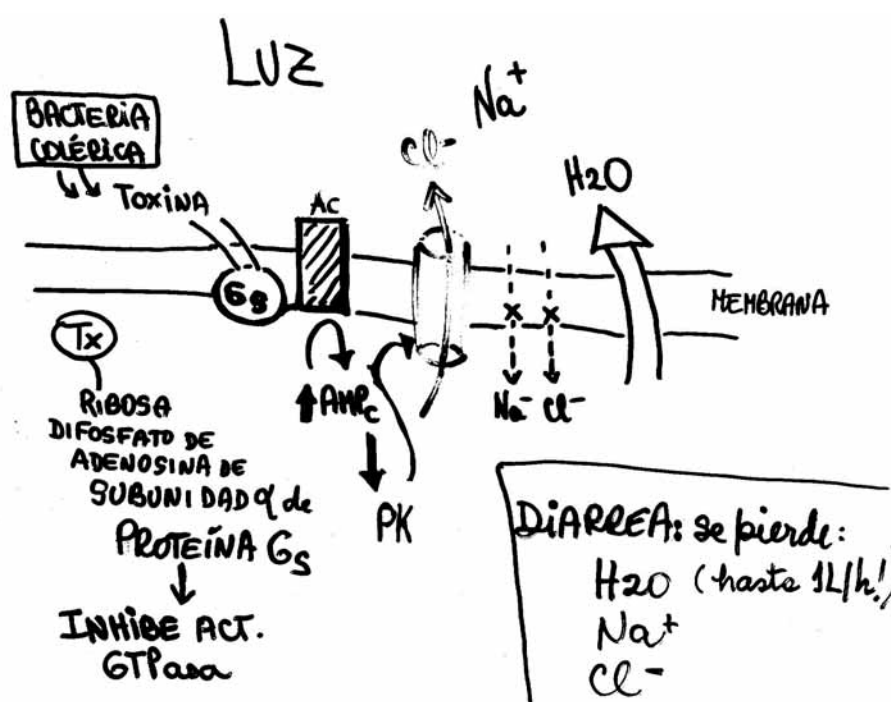 LUZ
Na+
Cl-
BACTERIA
COLÉRICA
TOXINA
AC
H2O
Gs
MEMBRANA
Tx
RIBOSA
DIFOSFATO DE
ADENOSINA DE
SUBUNIDAD α de
PROTEÍNA Gs
INHIBE ACT.
GTPasa
AMPc
PK
Na- Cl-
DIARREA: se pierde:
H2O (hasta 1L/h!)
Na+
Cl-